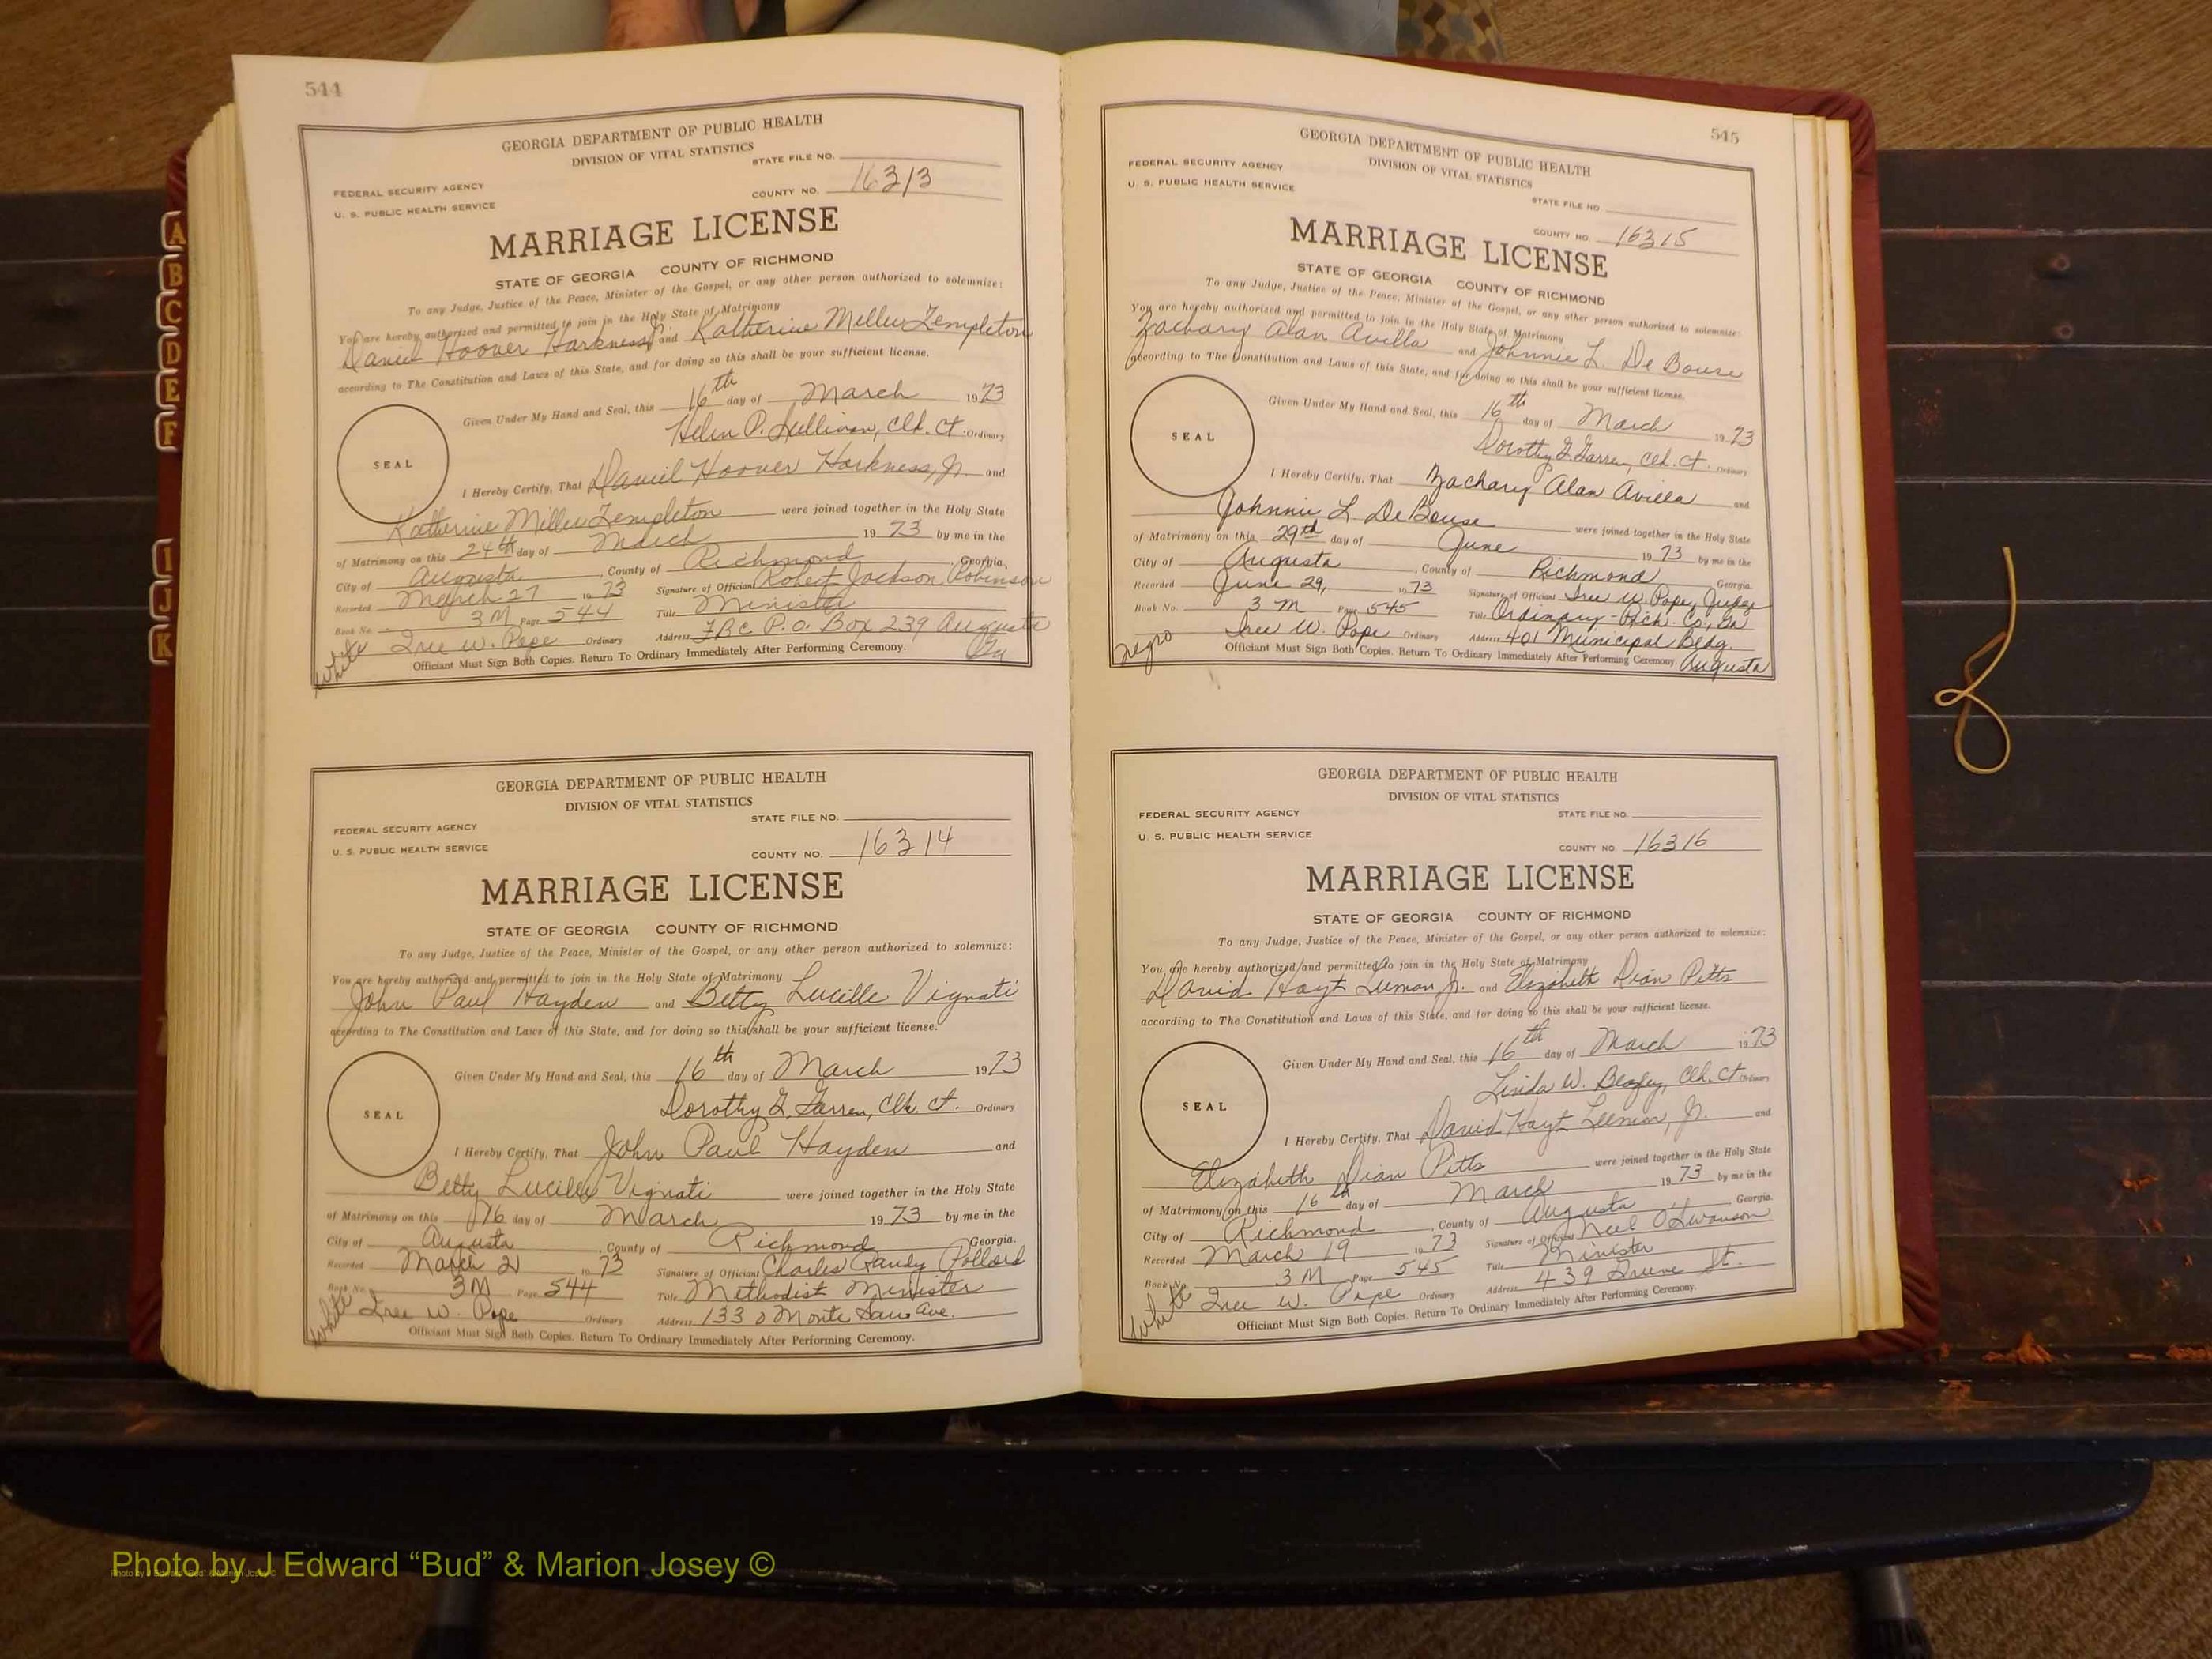 544
GEORGIA DEPARTMENT OF PUBLIC HEALTH
DIVISION OF VITAL STATISTICS
STATE FILE NO.
FEDERAL SECURITY AGENCY
U. S. PUBLIC HEALTH SERVICE
COUNTY NO. 16313
MARRIAGE LICENSE
STATE OF GEORGIA COUNTY OF RICHMOND
To any Judge, Justice of the Peace, Minister of the Gospel, or any other person authorized to solemnize:
You are hereby authorized and permitted to join in the Holy State of Matrimony
Daniel Hoover Harkness Jr. and Katherine Miller Templeton
according to The Constitution and Laws of this State, and for doing so this shall be your sufficient license.
Given Under My Hand and Seal, this 16th day of March 1973
Helen P. Sullivan, Clk. Ct. Ordinary
SEAL
I Hereby Certify, That Daniel Hoover Harkness, Jr. and
Katherine Miller Templeton were joined together in the Holy State
of Matrimony on this 24th day of March 1973 by me in the
City of Augusta, County of Richmond, Georgia.
Recorded March 27 1973 Signature of Officiant Robert Jackson Robinson
Book No. 3M Page 544 Title Minister
Iree W. Pope Ordinary Address FBC P.O. Box 239 Augusta
Ga
White
Officiant Must Sign Both Copies. Return To Ordinary Immediately After Performing Ceremony.
GEORGIA DEPARTMENT OF PUBLIC HEALTH
DIVISION OF VITAL STATISTICS
STATE FILE NO.
FEDERAL SECURITY AGENCY
U. S. PUBLIC HEALTH SERVICE
COUNTY NO. 16314
MARRIAGE LICENSE
STATE OF GEORGIA COUNTY OF RICHMOND
To any Judge, Justice of the Peace, Minister of the Gospel, or any other person authorized to solemnize:
You are hereby authorized and permitted to join in the Holy State of Matrimony
John Paul Hayden and Betty Lucille Vignati
according to The Constitution and Laws of this State, and for doing so this shall be your sufficient license.
Given Under My Hand and Seal, this 16th day of March 1973
Dorothy G. Garren, Clk. Ct. Ordinary
SEAL
I Hereby Certify, That John Paul Hayden and
Betty Lucille Vignati were joined together in the Holy State
of Matrimony on this 16 day of March 1973 by me in the
City of Augusta, County of Richmond Georgia.
Recorded March 21 1973 Signature of Officiant Charles Pollard
Book No. 3M Page 544 Title Methodist Minister
Iree W. Pope Ordinary Address 1330 Monte Sano Ave.
White
Officiant Must Sign Both Copies. Return To Ordinary Immediately After Performing Ceremony.
545
GEORGIA DEPARTMENT OF PUBLIC HEALTH
DIVISION OF VITAL STATISTICS
FEDERAL SECURITY AGENCY
U. S. PUBLIC HEALTH SERVICE
STATE FILE NO.
COUNTY NO. 16315
MARRIAGE LICENSE
STATE OF GEORGIA COUNTY OF RICHMOND
To any Judge, Justice of the Peace, Minister of the Gospel, or any other person authorized to solemnize:
You are hereby authorized and permitted to join in the Holy State of Matrimony
Zachary Alan Avilla and Johnnie L. De Bouse
according to The Constitution and Laws of this State, and for doing so this shall be your sufficient license.
Given Under My Hand and Seal, this 16th day of March 1973
Dorothy G. Garren, Clk. Ct. Ordinary
SEAL
I Hereby Certify, That Zachary Alan Avilla and
Johnnie L. DeBouse were joined together in the Holy State
of Matrimony on this 29th day of June 1973 by me in the
City of Augusta, County of Richmond Georgia.
Recorded June 29, 1973 Signature of Officiant Iree W. Pope, Judge
Book No. 3M Page 545 Title Ordinary-Rich. Co., Ga
Iree W. Pope Ordinary Address 401 Municipal Bldg.
Augusta
negro
Officiant Must Sign Both Copies. Return To Ordinary Immediately After Performing Ceremony.
GEORGIA DEPARTMENT OF PUBLIC HEALTH
DIVISION OF VITAL STATISTICS
FEDERAL SECURITY AGENCY
STATE FILE NO.
U. S. PUBLIC HEALTH SERVICE
COUNTY NO. 16316
MARRIAGE LICENSE
STATE OF GEORGIA COUNTY OF RICHMOND
To any Judge, Justice of the Peace, Minister of the Gospel, or any other person authorized to solemnize:
You are hereby authorized and permitted to join in the Holy State of Matrimony
David Hoyt Jr. and Elizabeth Dian Pitts
according to The Constitution and Laws of this State, and for doing so this shall be your sufficient license.
Given Under My Hand and Seal, this 16th day of March 1973
Linda W. Beazley, Clk. Ct. Ordinary
SEAL
I Hereby Certify, That David Hoyt Jr. and
Elizabeth Dian Pitts were joined together in the Holy State
of Matrimony on this 16th day of March 1973 by me in the
City of Richmond, County of Augusta Georgia.
Recorded March 19 1973 Signature of Officiant Neil O'Swanson
Book No. 3M Page 545 Title Minister
Iree W. Pope Ordinary Address 439 Greene St.
White
Officiant Must Sign Both Copies. Return To Ordinary Immediately After Performing Ceremony.
A
B
C
D
E
F
I
J
K
Photo by J Edward “Bud” & Marion Josey ©